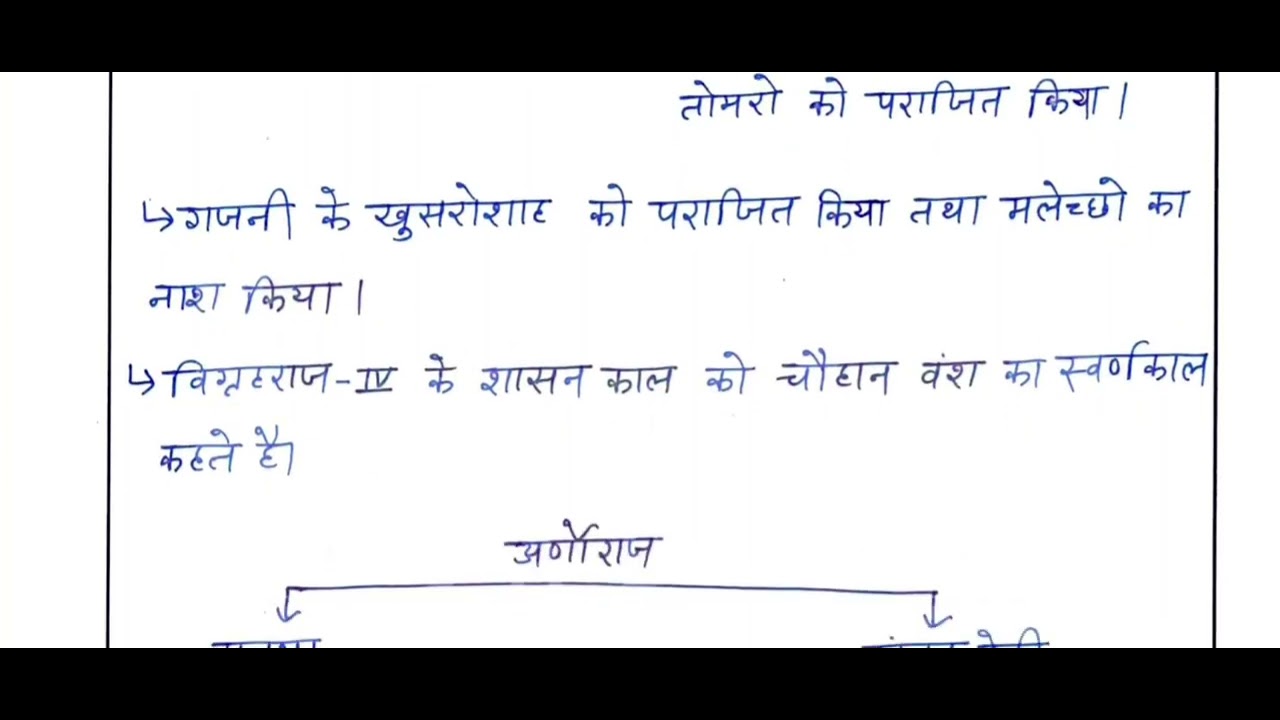 तोमरो को पराजित किया।
↳ गजनी के खुसरोशाह को पराजित किया तथा मलेच्छो का
नाश किया।
↳ विग्रहराज-IV के शासन काल को चौहान वंश का स्वर्णकाल
कहते है।
अर्णोराज